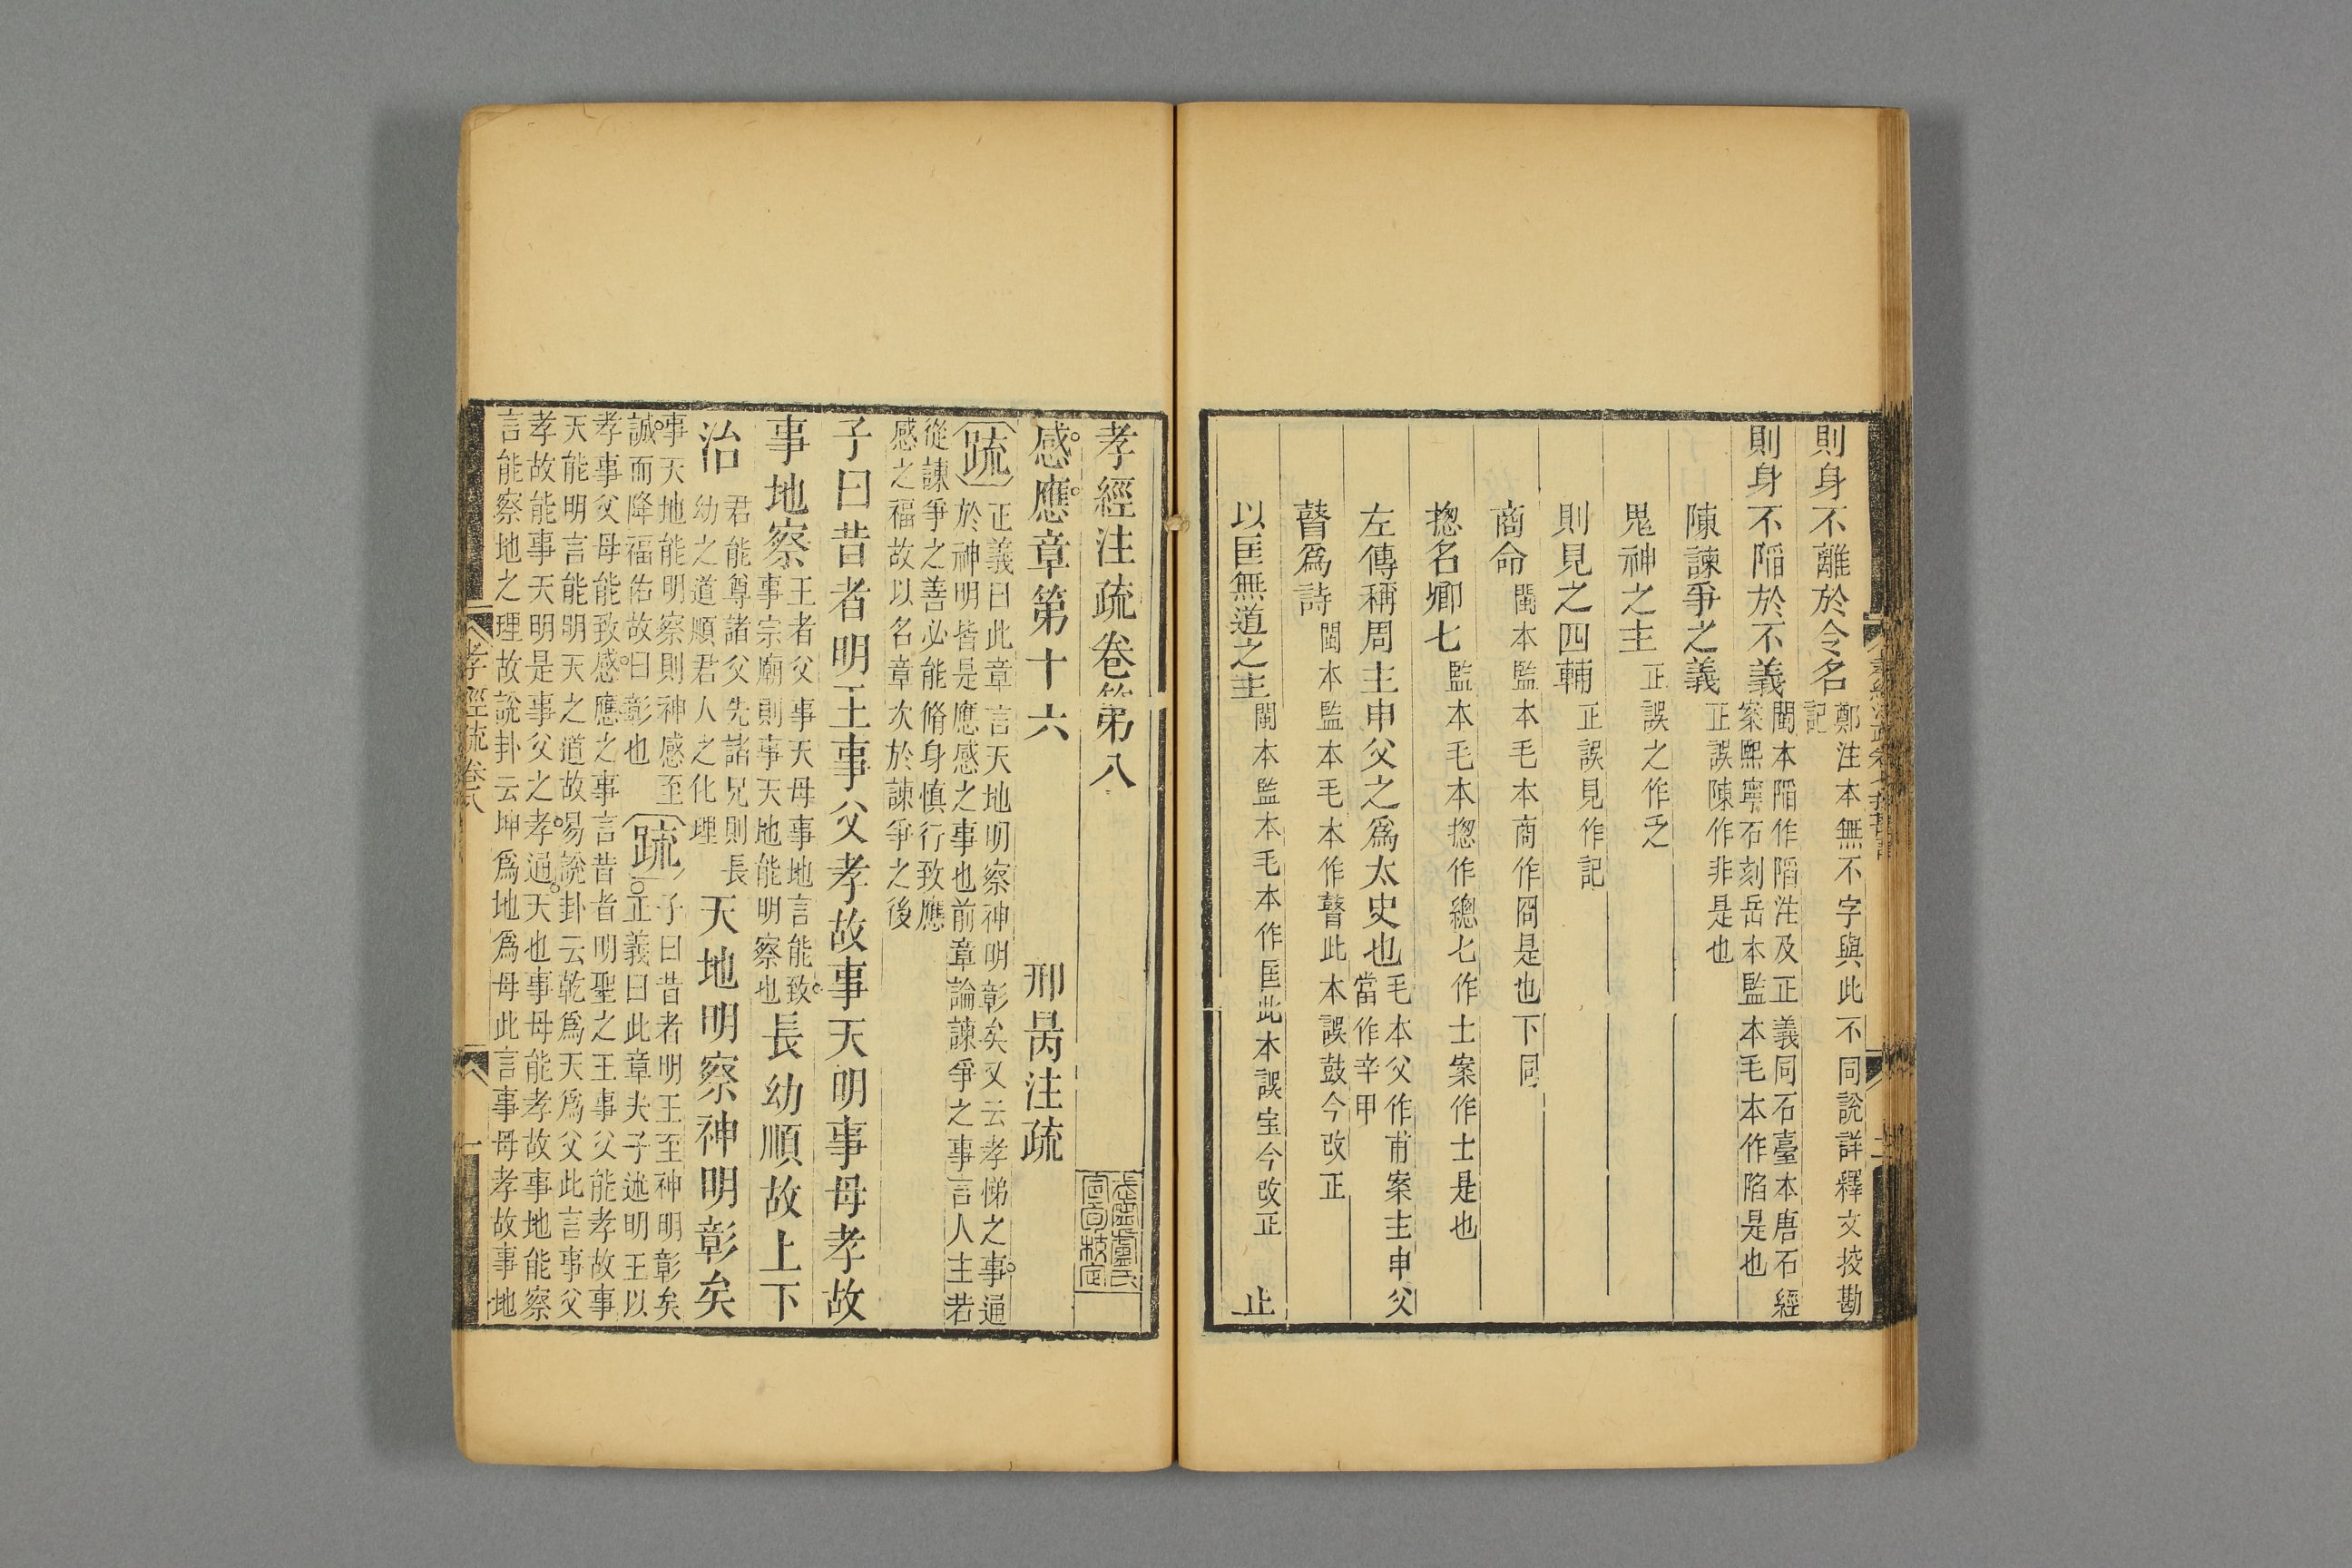 則身不離於令名 鄭注本無不字與此不同說詳釋文挍勘
記
則身不陷於不義 閩本陷作䧟注及正義同石臺本唐石經
案熙寧石刻岳本監本毛本作陷是也
陳諫爭之義 正誤陳作非是也
鬼神之主 正誤之作乏
則見之四輔 正誤見作記
商命 閩本監本毛本商作冏是也下同
揔名卿七 監本毛本揔作總七作士案作士是也
左傳稱周主申父之爲太史也 毛本父作甫案主申父
當作辛甲
瞽爲詩 閩本監本毛本作瞽此本誤鼓今改正
以匡無道之主 閩本監本毛本作匡此本誤宔今改正
止
孝經注疏卷第八
感應章第十六
邢昺注疏
疏 正義曰此章言天地明察神明彰矣又云孝悌之事通
於神明皆是應感之事也前章論諫爭之事言人主若
從諫爭之善必能脩身慎行致應
感之福故以名章次於諫爭之後
子曰昔者明王事父孝故事天明事母孝故
事地察 王者父事天母事地言能致
事宗廟則事天地能明察也 長幼順故上下
治 君能尊諸父先諸兄則長
幼之道順君人之化理 天地明察神明彰矣
事天地能明察則神感至
誠而降福佑故曰彰也 疏 子曰昔者明王至神明彰矣
正義曰此章夫子述明王以
孝事父母能致感應之事言昔者明聖之王事父能孝故事
天能明言能明天之道故易說卦云乾爲天爲父此言事父
孝故能事天明是事父之孝通天也事母能孝故事地能察
言能察地之理故說卦云坤爲地爲母此言事母孝故事地
孝經疏卷八
一